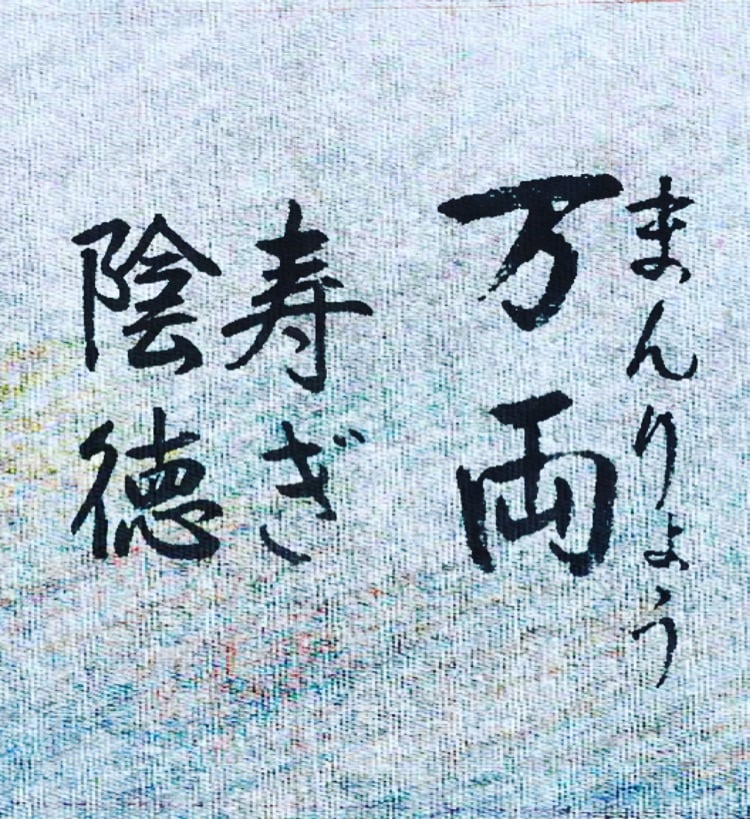 まんりょう
万両
寿ぎ
陰徳